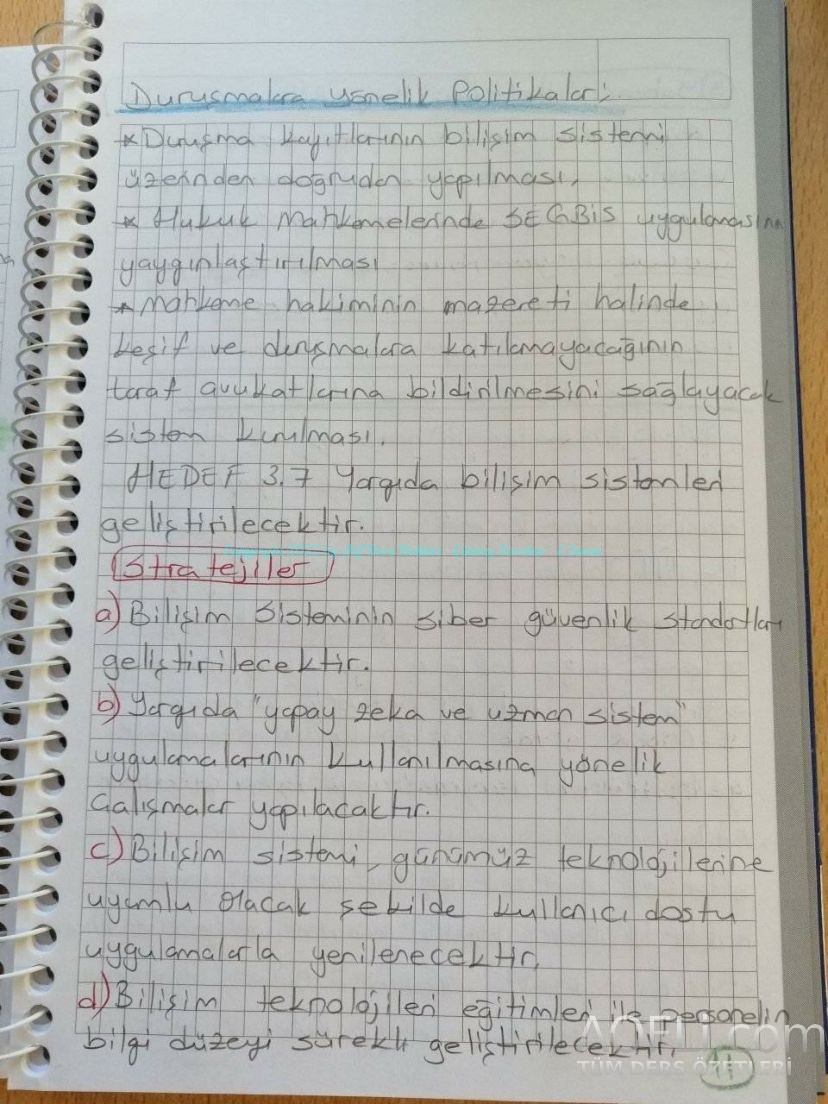 Duruşmalara yönelik Politikaları;
* Duruşma kayıtlarının bilişim sistemi
üzerinden doğrudan yapılması,
* Hukuk Mahkemelerinde SEGBİS uygulamasının
yaygınlaştırılması
* Mahkeme hakiminin mazereti halinde
keşif ve duruşmalara katılamayacağının
taraf avukatlarına bildirilmesini sağlayacak
sistem kurulması.
HEDEF 3.7 Yargıda bilişim sistemleri
geliştirilecektir.
Stratejiler
a) Bilişim Sisteminin siber güvenlik standartları
geliştirilecektir.
b) Yargıda "yapay zeka ve uzman sistem"
uygulamalarının kullanılmasına yönelik
Çalışmalar yapılacaktır.
c) Bilişim sistemi, günümüz teknolojilerine
uyumlu olacak şekilde kullanıcı dostu
uygulamalarla yenilenecektir.
d) Bilişim teknolojileri eğitimleri ile personelin
bilgi düzeyi sürekli geliştirilecektir.
AOFLI.com
TÜM DERS ÖZETLERİ
11